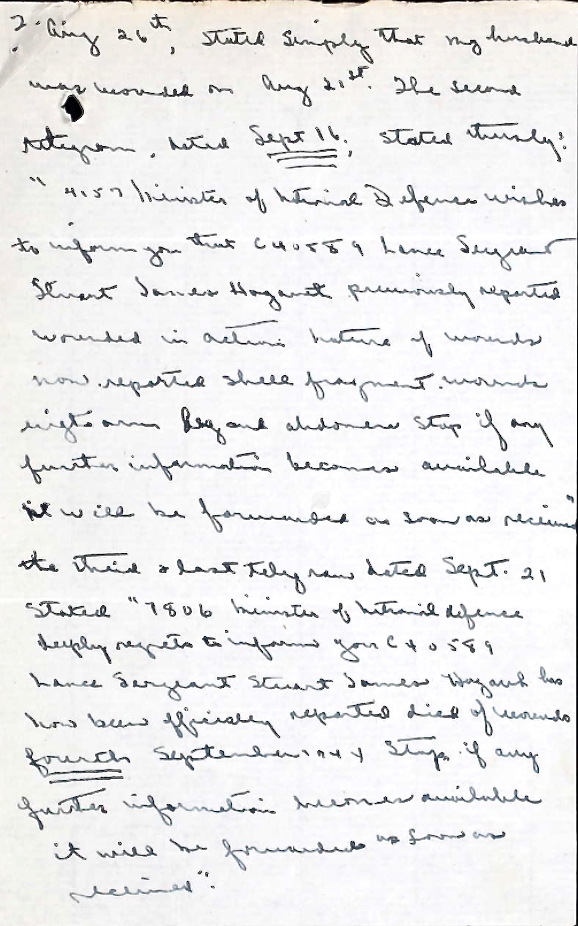 2. Aug 26th, stated simply that my husband
was wounded on Aug 21st. The second
telegram, dated Sept 16, stated thusly:
"4157 Minister of National Defence wishes
to inform you that C40589 Lance Sergeant
Stuart James Hogarth previously reported
wounded in action nature of wounds
now reported shell fragment wounds
right arm leg and abdomen Stop if any
further information becomes available
it will be forwarded as soon as received"
the third & last telegram dated Sept. 21
Stated "7806 Minister of National defence
deeply regrets to inform you C40589
Lance Sergeant Stuart James Hogarth has
now been officially reported died of wounds
fourth September 1944 Stop if any
further information becomes available
it will be forwarded as soon as
received".